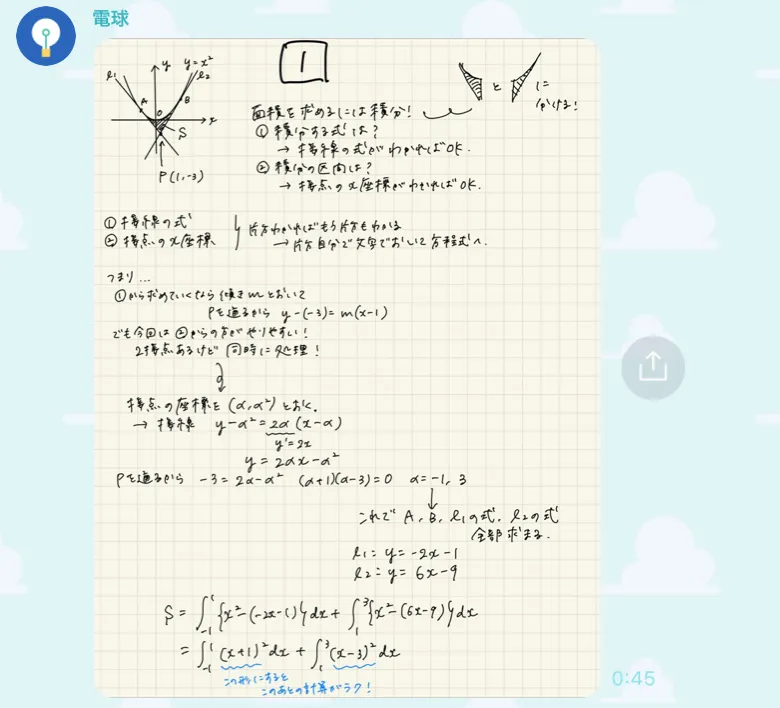 電球
1
y
y=x²
l₁
l₂
A
B
O
x
S
P(1,-3)
と
に
分ける!
面積を求めるには積分!
① 積分する式は?
→ 接線の式がわかればOK.
② 積分の区間は?
→ 接点のx座標がわかればOK.
① 接線の式
② 接点のx座標
片方わかればもう片方もわかる
→ 片方自分で文字でおいて方程式へ.
つまり...
①から求めていくなら傾きmとおいて
Pを通るから y-(-3)=m(x-1)
でも今回は②からの方がやりやすい!
2接点あるけど 同時に処理!
接点の座標を(α,α²)とおく.
→ 接線 y-α²=2α(x-α)
y'=2x
y=2αx-α²
Pを通るから -3=2α-α² (α+1)(α-3)=0 α=-1, 3
これで A, B, l₁の式, l₂の式
全部求まる.
l₁: y=-2x-1
l₂: y=6x-9
S=∫₋₁¹{x²-(-2x-1)}dx+∫₁³{x²-(6x-9)}dx
=∫₋₁¹(x+1)²dx+∫₁³(x-3)²dx
この形にすると
このあとの計算がラク!
0:45